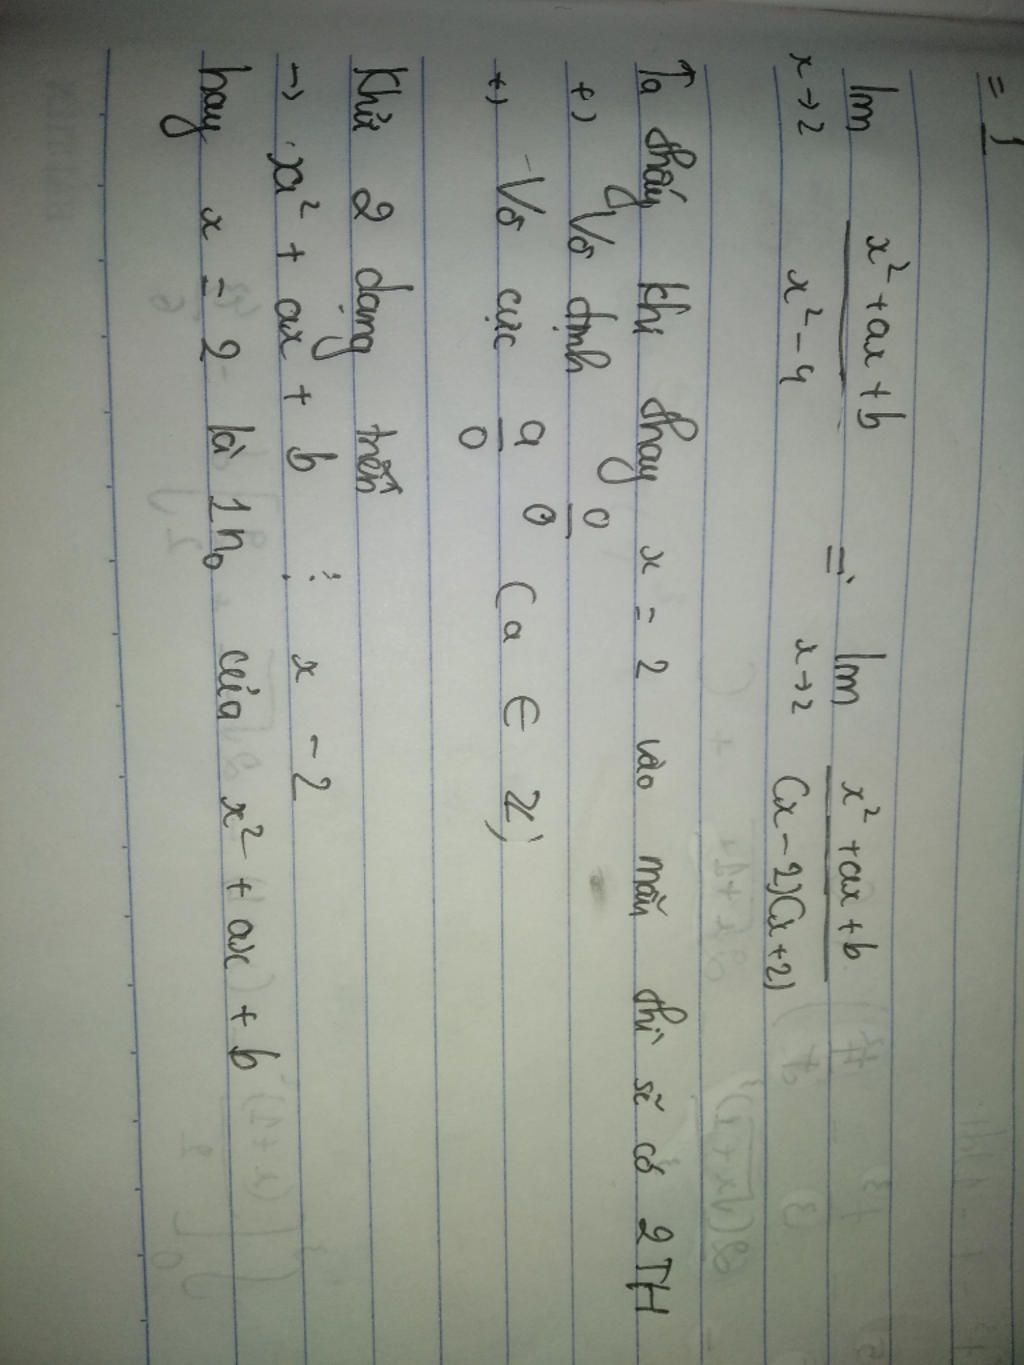 = 1
lim x² + ax + b = lim x² + ax + b
x→2 x² - 4 x→2 (x - 2)(x + 2)
Ta thấy khi thay x = 2 vào mẫu thì sẽ có 2TH
+) Vô định 0/0
+) Vô cực a/0 (a ∈ Z)
Khử 2 dạng trên
→ x² + ax + b ⋮ x - 2
hay x = 2 là 1 n₀ của x² + ax + b